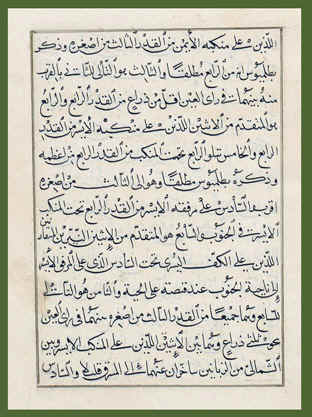 اللذين على منكبه الأيمن من القدر الثالث من اصغره وذكر
بطلميوس انه من الرابع مطلقا والثالث هو التالى للثانى بالقرب
منه بينهما فى راى العين اقل من ذراع من القدر الرابع والرابع
هو المتقدم من الاثنين اللذين على منكبه الايسر من القدر
الرابع والخامس تلو الرابع تحت المنكب من القدر الرابع من اعظمه
وذكره بطلميوس مطلقا وهو الى الثالث من اصغره
اقرب والسادس على مرفقه الايسر من القدر الرابع تحت المنكب
الايسر فى الجنوب والسابع هو المتقدم من الاثنين
اللذين على الكف اليسرى تحت السادس الذى على المرفق الايسر
الى ناحية الجنوب عند قبضته على الحية والثامن هو التالى
للسابع وهما جميعا من القدر الثالث من اصغره بينهما فى راى العين
نحو ثلثى ذراع وبينهما بين الاثنين اللذين على المنكب الايسر وبين
الشمالى من الزبانيين متاخران عنهما الى المشرق قليلا والتاسع